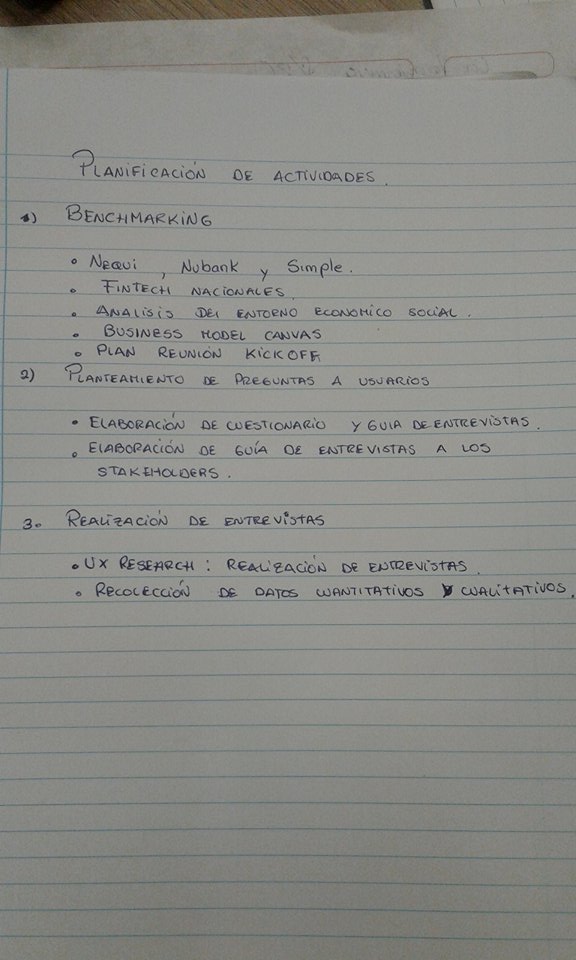 PLANIFICACIÓN DE ACTIVIDADES.
1) BENCHMARKING
• Nequi, Nubank y Simple.
• FINTECH NACIONALES.
• ANALISIS DEL ENTORNO ECONOMICO SOCIAL.
• BUSINESS MODEL CANVAS
• PLAN REUNIÓN KICKOFF
2) PLANTEAMIENTO DE PREGUNTAS A USUARIOS
• ELABORACIÓN DE CUESTIONARIO Y GUIA DE ENTREVISTAS.
• ELABORACIÓN DE GUÍA DE ENTREVISTAS A LOS
STAKEHOLDERS.
3. REALIZACIÓN DE ENTREVISTAS
• UX RESEARCH: REALIZACIÓN DE ENTREVISTAS.
• RECOLECCIÓN DE DATOS CUANTITATIVOS Y CUALITATIVOS.